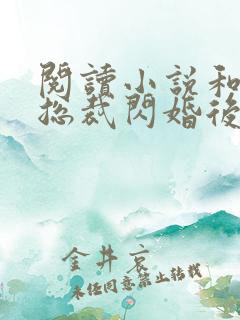 閱讀小說和
總裁閃婚後
金井哀
未經同意禁止轉載